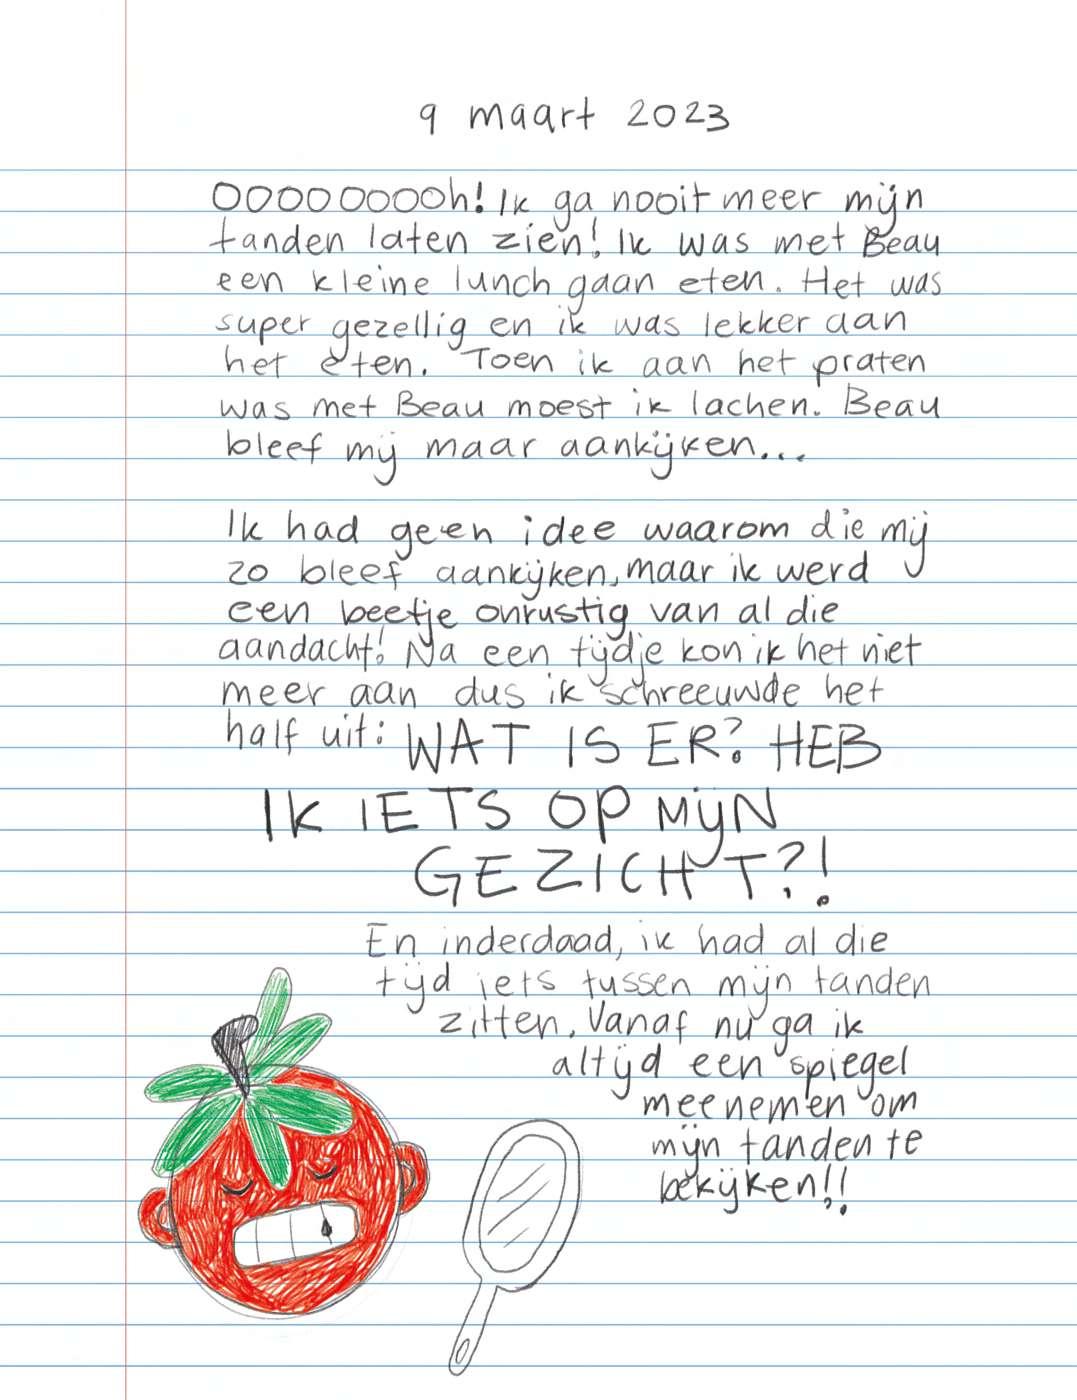 9 maart 2023
OOOOOOOOOh! Ik ga nooit meer mijn
tanden laten zien! Ik was met Beau
een kleine lunch gaan eten. Het was
super gezellig en ik was lekker aan
het eten. Toen ik aan het praten
was met Beau moest ik lachen. Beau
bleef mij maar aankijken...
Ik had geen idee waarom die mij
zo bleef aankijken, maar ik werd
een beetje onrustig van al die
aandacht! Na een tijdje kon ik het niet
meer aan dus ik schreeuwde het
half uit: WAT IS ER? HEB
IK IETS OP MIJN
GEZICHT?!
En inderdaad, ik had al die
tijd iets tussen mijn tanden
zitten. Vanaf nu ga ik
altijd een spiegel
meenemen om
mijn tanden te
bekijken!!